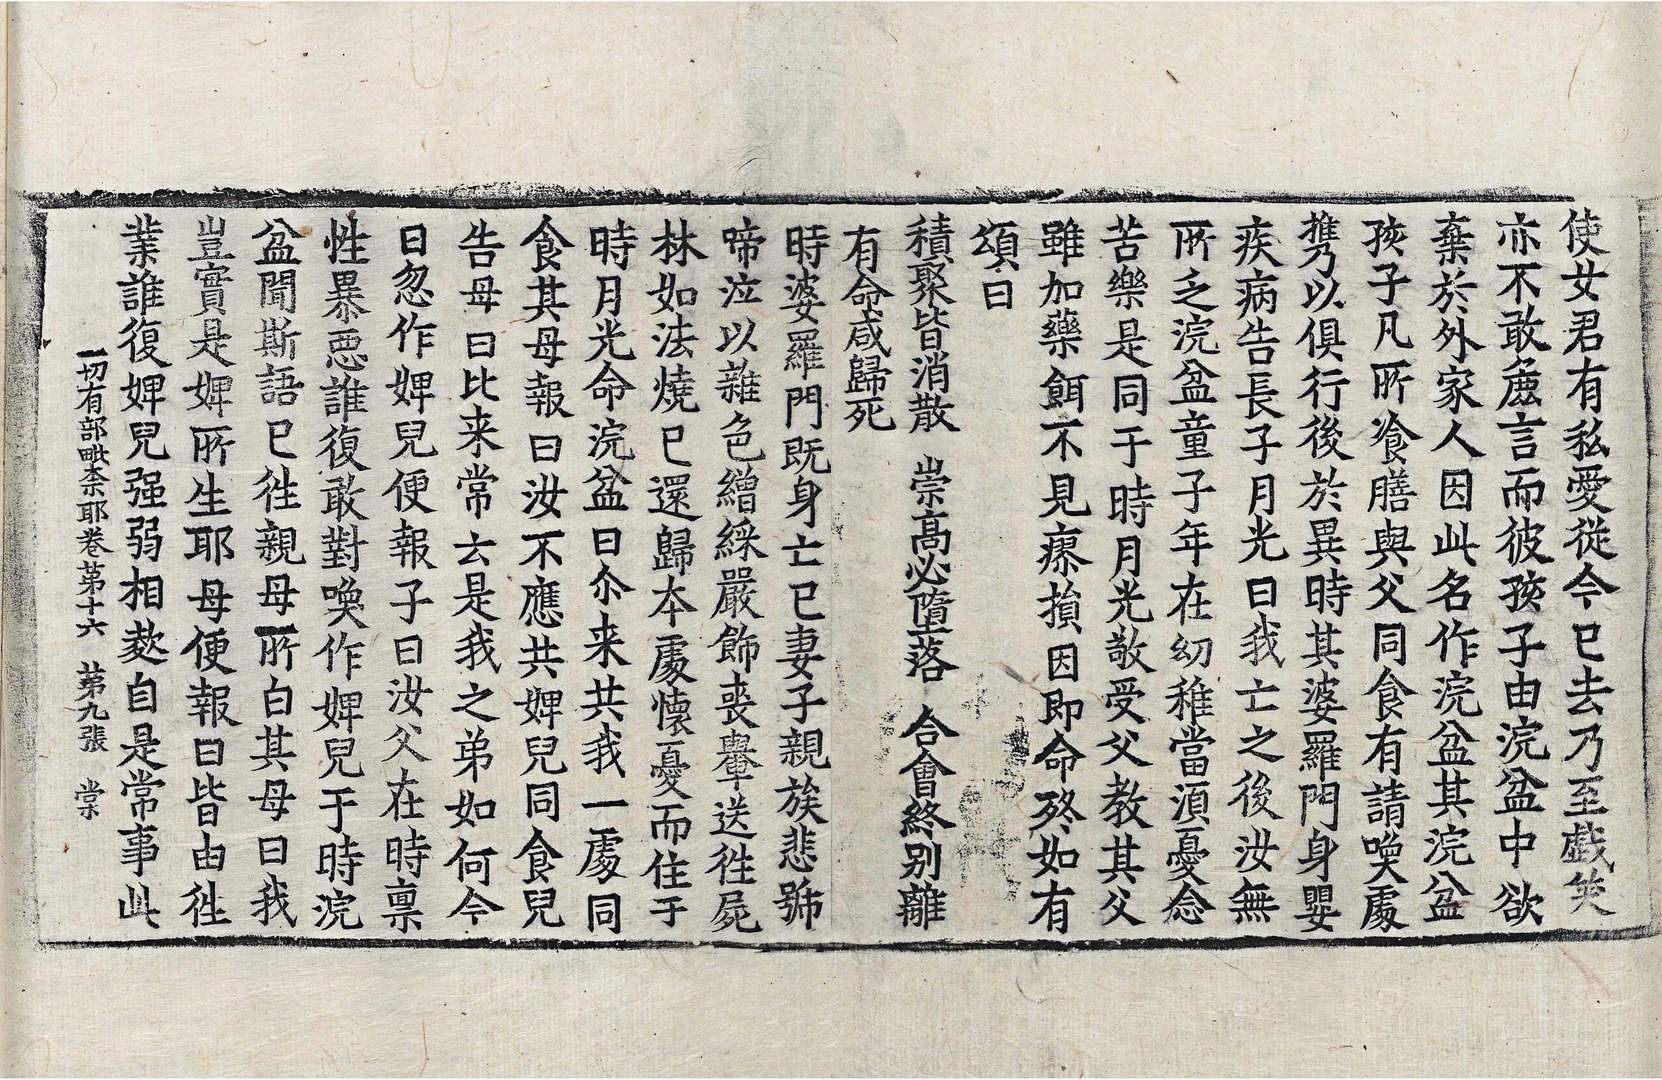 使女君有私愛從今已去乃至戱笑
亦不敢麁言而彼孩子由浣盆中欲
棄於外家人因此名作浣盆其浣盆
孩子凡所飡膳與父同食有請喚處
携以俱行後於異時其婆羅門身嬰
疾病告長子月光曰我亡之後汝無
所乏浣盆童子年在幼稚當湏憂念
苦樂是同于時月光敬受父教其父
雖加藥餌不見瘳損因即命終如有
頌曰
積聚皆消散　崇髙必墮落　合會終別離
有命咸歸死
時婆羅門旣身亡已妻子親族悲號
啼泣以雜色繒綵嚴飾喪轝送徃屍
林如法燒已還歸本處懷憂而住于
時月光命浣盆曰尒来共我一處同
食其母報曰汝不應共婢兒同食兒
告母曰比来常云是我之弟如何今
日忽作婢兒便報子曰汝父在時禀
性暴惡誰復敢對喚作婢兒于時浣
盆聞斯語已徃親母所白其母曰我
豈實是婢所生耶母便報曰皆由徃
業誰復婢兒强弱相欺自是常事此
一切有部毗柰耶卷苐十六　苐九張　棠